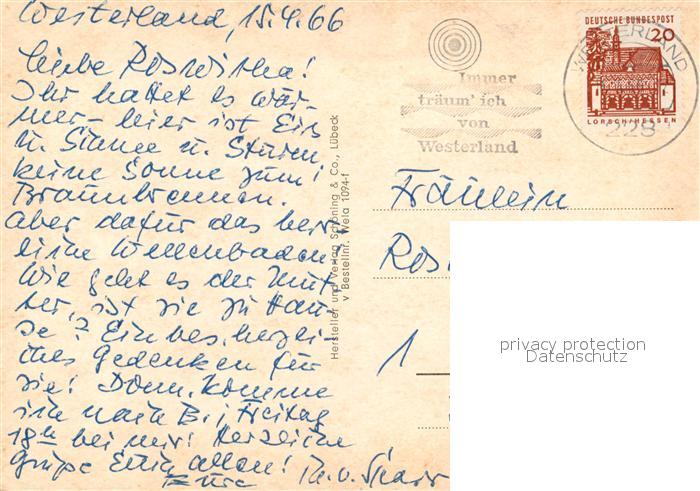 Westerland, 15.4.66
Liebe Roswitha!
Ihr hattet es wär-
mer - hier ist Eis
u. Stürme u. Sturm,
keine Sonne zum
Braunbrennen.
Aber dafür das herr-
liche Wellenbaden.
Wie geht es der Mut-
ter, ist sie zu Hau-
se? Ein bes. herzli-
ches Gedenken für
sie! Donn. komme
ich nach B., Freitag
18h bei mir! Herzliche
Grüße Euch allen!
Eure
Hersteller und Verlag Schöning & Co., Lübeck
v Bestellnr. Wela 1094-f
Immer
träum' ich
von
Westerland
DEUTSCHE BUNDESPOST
20
LORSCH/HESSEN
WESTERLAND
228
Fräulein
Ros
1
privacy protection
Datenschutz